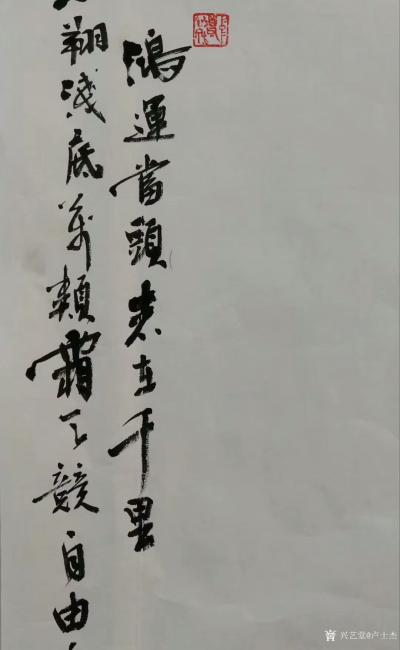 鴻運當頭志在千里
翔淺底萬類霜天競自由
兴艺堂@卢士杰